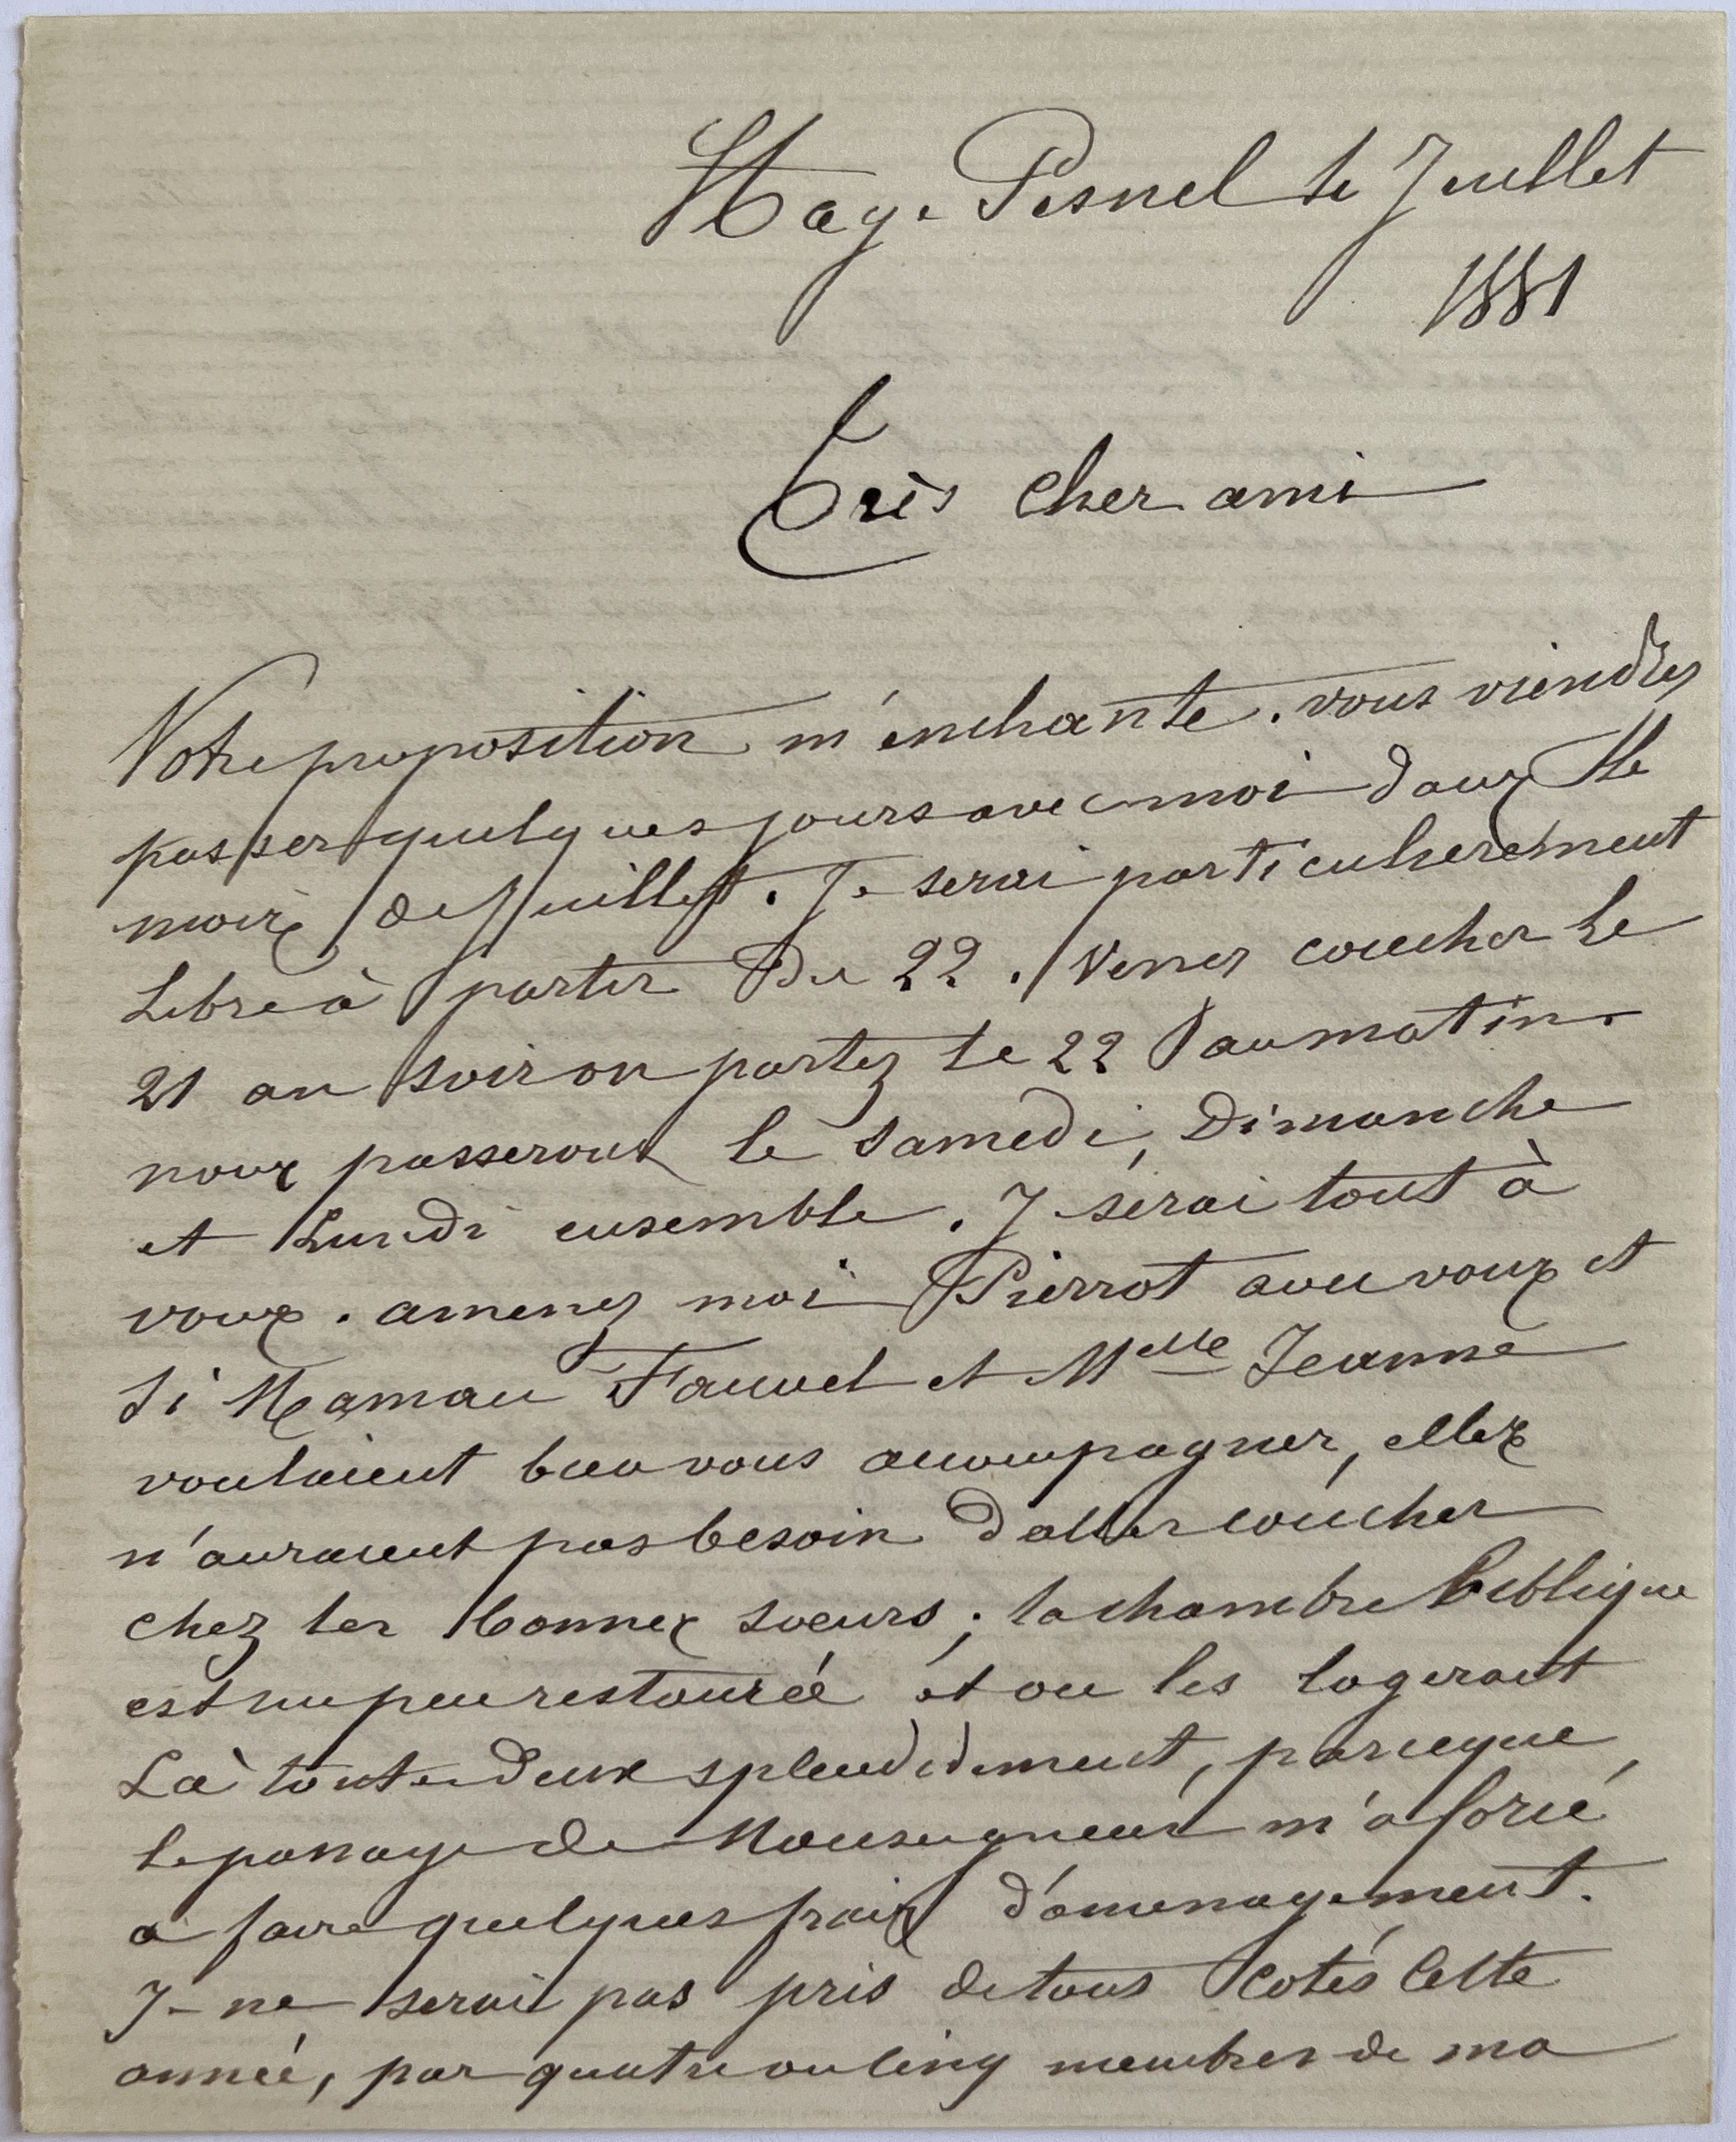 Haye Pesnel le Juillet
1881
Très cher ami
Votre proposition m'enchante. vous viendrez
passer quelques jours avec moi dans le
mois de Juillet. Je serai particulièrement
libre à partir du 22. Venez coucher le
21 au soir ou partez le 22 au matin.
nous passerons le Samedi, Dimanche
et Lundi ensemble. Je serai tout à
vous. amenez moi Pierrot avec vous et
si Maman Fauvel et Melle Jeanne
voulaient bien vous accompagner, elles
n'auraient pas besoin d'aller coucher
chez les bonnes soeurs; la chambre biblique
est un peu restaurée et on les logerait
là toute deux splendidement, parceque
le passage de Monseigneur m'a forcé
à faire quelques frais d'aménagement.
Je ne serai pas pris de tous cotés cette
année, par quatre ou cinq membres de ma